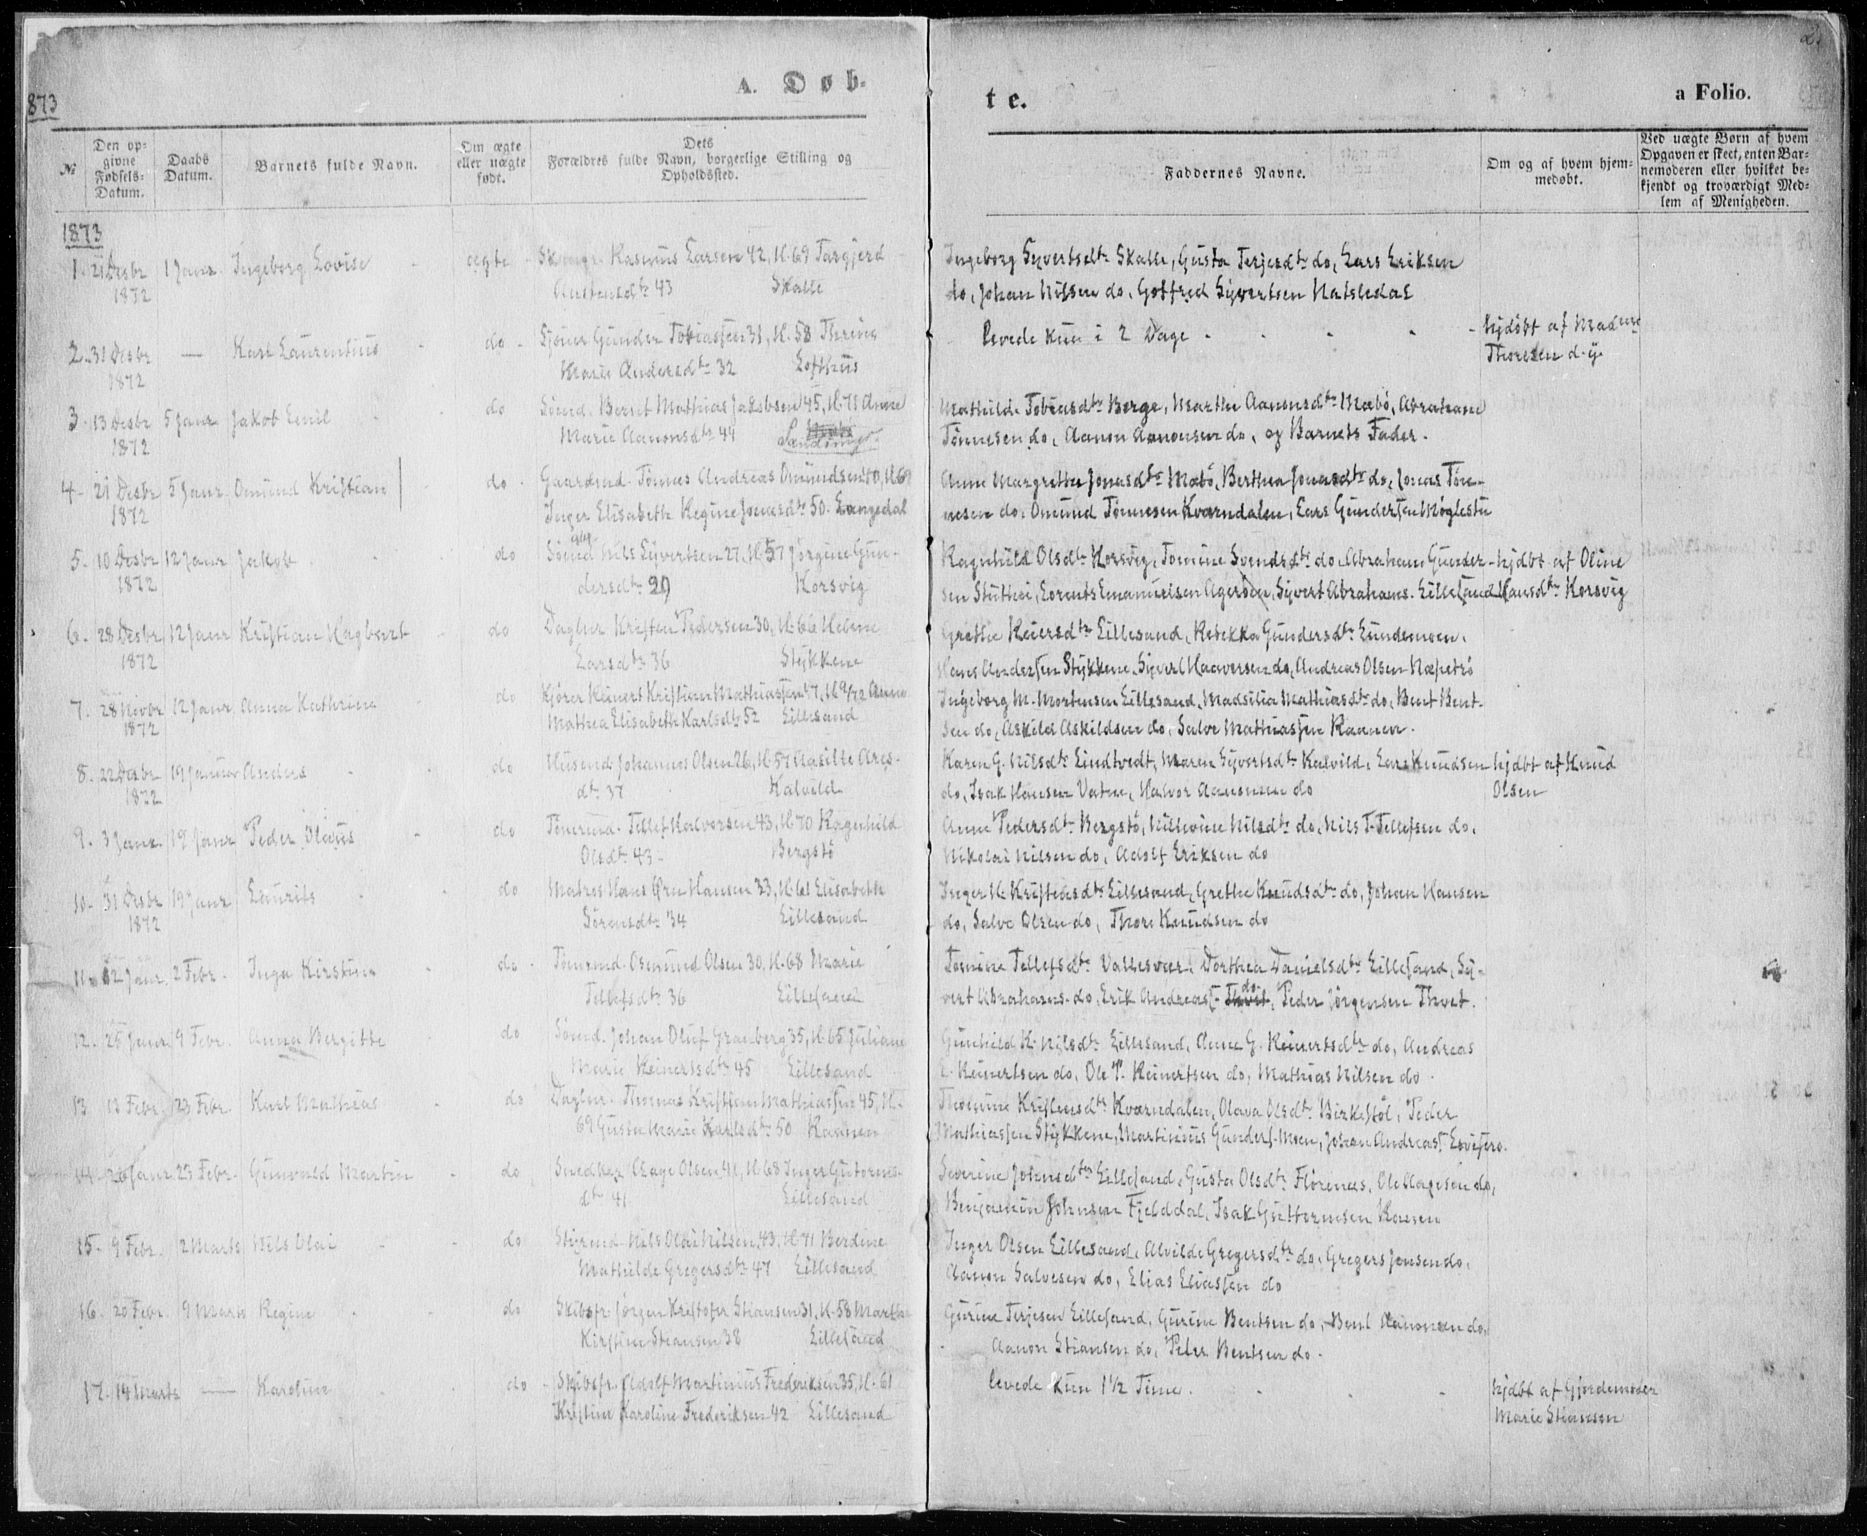 1873
A. Døb-
te.
a Folio.
№
Den op-
givne
Fødsels-
Datum.
Daabs
Datum.
Barnets fulde Navn.
Om ægte
eller uægte
født.
Dets
Forældres fulde Navn, borgerlige Stilling og
Opholdssted.
Faddernes Navne.
Om og af hvem hjem-
medøbt.
Ved uægte Børn af hvem
Opgaven er skeet, enten Bar-
nemoderen eller hvilket be-
kjendt og troværdigt Med-
lem af Menigheden.
1873
1. 21 Desbr 1 Janr. Ingeborg Lovise - ægte - Rasmus Larsen 42, K. 69 Targjerd
1872 Austensdtr 43 Skalle
Ingeborg Syvertsdtr Skalle, Gusta Terjesdtr do, Lars Eriksen
do, Johan Nilsen do, Gotfred Syvertsen
2. 31 Desbr — Karl Laurentius - do - Gunder Tobiassen 31, K. 58 Thrine
1872 Marie Andersdtr 32 Lofthus
Levede kun i 2 Dage - - - - hjdøbt af Madme
Thoresen d.y.
3. 13 Desbr 5 Janr Jakob Emil - do Sømd. Bernt Mathias Jakobsen 45, K. 71 Anne
1872 Marie Aanonsdtr 44
Mathilde Tobiasdtr Berge, Marthe Aanonsdtr Mæbø, Abraham
Tønnesen do, Aanon Aanonsen do, og Barnets Fader.
4. 21 Desbr 5 Janr. Omund Kristian do - Gaardmd. Tønnes Andreas Omundsen 40, K. 69
1872 Inger Elisabeth Regine Jonasdtr 50. Langedal
Anne Margrethe Jonasdtr Mæbø, Berthea Jonasdtr do, Jonas Tøn-
nesen do, Omund Tønnesen Kværndalen, Lars Gundersen Møglestu
5. 10 Desbr 12 Janr Jakob - do Sømd Nils Syvertsen 27, K. 57 Jørgine Gun-
1872 dersdtr 29 Korsvig
Ragnhild Olsdtr Korsvig, Tomine Svendsdtr do, Abraham Gunder- hjdbt af Oline
sen Stuthei, Lorents Emanuelsen Agerøen, Syvert Abrahams. Lillesand Hansdtr Korsvig
6. 28 Desbr 12 Janr Kristian Hagbart do Daglnr Kristen Pedersen 30, K. 66 Helene
1872 Larsdtr 36 Stykkene
Grethe Reiersdtr Lillesand, Rebekka Gundersdtr Lundemoen,
Hans Andersen Stykkene, Syvert Haaversen do, Andreas Olsen
7. 28 Novbr 12 Janr. Anna Kathrine do Kjører Reinert Kristian Mathiassen 47, K. 9/72 Anne
1872 Mathea Elisabeth Karlsdtr 52 Lillesand
Ingeborg M. Mortensen Lillesand, Mathiasdtr do, Bent Bent-
sen do, Askild Askildsen do, Salve Mathiassen Kaanen.
8. 22 Desbr 19 Januar Anders - do Husmd Johannes Olsen 26, K. 57 Aasille Ares-
1872 dtr 37 Kalvild
Karen G. Nilsdtr Lindtvedt, Maren Syvertsdtr Kalvild, Lars Knudsen hjdbt af Knud
do, Isak Hansen Vatne, Halvor Aanonsen do Olsen
9. 3 Janr. 19 Janr Peder Olaus - do Tømrmd. Tellef Halvorsen 43, K. 70 Ragnhild
Olsdtr 43 - Bergstø
Anne Pedersdtr Bergstø, Nilsdtr do, Nils T. Tellefsen do,
Nikolai Nilsen do, Adolf Eriksen do
10. 31 Desbr 19 Janr Laurits - do Matros Hans Ørn Hansen 33, K. 61 Elisabeth
1872 Sørensdtr 34 Lillesand
Inger K. Kristensdtr Lillesand, Grethe Knudsdtr do, Johan Hansen
do, Salve Olsen do, Thore Knudsen do
11. 12 Janr 2 Febr. Inga Kirstine - do - Tømrmd. Osmund Olsen 30, K. 68 Marie
Tellefsdtr 36 Lillesand
Tomine Tellefsdtr Vallesvær, Dorthea Danielsdtr Lillesand, Sy-
vert Abrahams. do, Erik Andreas. do, Peder Jørgensen Thvet.
12. 25 Janr 9 Febr. Anna Bergitte do Sømd. Johan Oluf Granberg 35, K. 65 Juliane
Marie Reinertsdtr 45 Lillesand
Gunhild K. Nilsdtr Lillesand, Anne G. Reinertsdtr do, Andreas
Reinertsen do, Ole T. Reinertsen do, Mathias Nilsen do.
13 13 Febr. 23 Febr. Karl Mathias do Daglnr. Thomas Kristian Mathiassen 45, K.
69 Gusta Marie Karlsdtr 50 Kaanen
Thomine Kristensdtr Kværndalen, Olava Olsdtr Birkestøl, Peder
Mathiassen Stykkene, Martinius Gunders. Moen, Johan Andreas.
14. 26 Janr 23 Febr. Gunvald Martin - do Snedker Aage Olsen 41, K. 68 Inger Gutorms-
dtr 41 Lillesand
Severine Johnsdtr Lillesand, Gusta Olsdtr Florenæs, Ole Aagesen do,
Benjamin Johnsen Fjelddal, Isak Guttormsen
15. 9 Febr. 2 Marts Nils Olai - do Styrmd. Nils Olai Nilsen 43, K. 71 Berdine
Mathilde Gregersdtr 47 Lillesand
Inger Olsen Lillesand, Alvilde Gregersdtr do, Gregers Jensen do,
Aanon Salvesen do, Elias Eliassen do
16. 20 Febr. 9 Marts Regine - do Skibsfr. Jørgen Kristofer Stiansen 31, K. 58 Marthe
Kirstine Stiansen 38 Lillesand
Gurine Terjesen Lillesand, Gurine Bentsen do, Bent Aanonsen do,
Aanon Stiansen do, Peter Bentsen do.
17. 14 Marts — Karoline - do - Skibsfr. Adolf Martinius Frederiksen 35, K. 61
Kristine Karoline Frederiksen 42 Lillesand
Levede kun 1½ Time. - - - hjdbt af Gjordemoder
Marie Stiansen